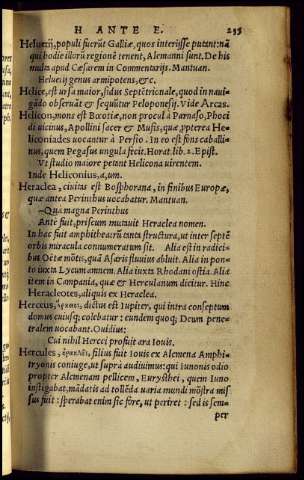 H ANTE E. 235
Heluetij, populi fuerūt Galliæ, quos interijsse putant: nā
qui hodie illorū regionē tenent, Alemanni sunt. De his
multa apud Cæsarem in Commentarijs. Mantuan.
Heluetij genus armipotens, &c.
Helice, est vrsa maior, sidus Septētrionale, quod in naui-
gādo obseruāt & sequūtur Peloponesij. Vide Arcas.
Helicon, mons est Bœotiæ, non procul à Parnaso, Phoci
di vicinus, Apollini sacer & Musis, quæ ꝓpterea He-
liconiades uocantur à Persio. In eo est fons caballi-
nus, quem Pegasus ungula fecit. Horat. lib. 2. Epist.
Vt studio maiore petant Helicona uirentem.
Inde Heliconius, a, um.
Heraclea, ciuitas est Bosphorana, in finibus Europæ,
quæ antea Perinthus uocabatur. Mantuan.
—Qua magna Perinthus
Ante fuit, priscum mutauit Heraclea nomen.
In hac fuit amphitheatrū tanta structura, ut inter septē
orbis miracula connumeratum sit. Alia est in radici-
bus Oetæ mōtis, quā Asaris fluuius abluit. Alia in pon-
to iuxta Lycum amnem. Alia iuxta Rhodani ostia. Alia
item in Campania, quæ & Herculanum dicitur. Hinc
Heracleotes, aliquis ex Heraclea.
Herceus, ἕρκειος, dictus est Iupiter, qui intra conseptum
domus cuiusq; colebatur: eundem quoq; Deum pene-
tralem uocabant. Ouidius:
Cui nihil Hercei profuit ara Iouis.
Hercules, ἡρακλῆς, filius fuit Iouis ex Alcmena Amphi-
tryonis coniuge, ut suprà audiuimus: qui Iunonis odio
propter Alcmenam pellicem, Eurysthei, quem Iuno
instigabat, mādatis ad tollēda uaria mundi mōstra mis
sus fuit: sperabat enim sic fore, ut periret: sed is sem-
per